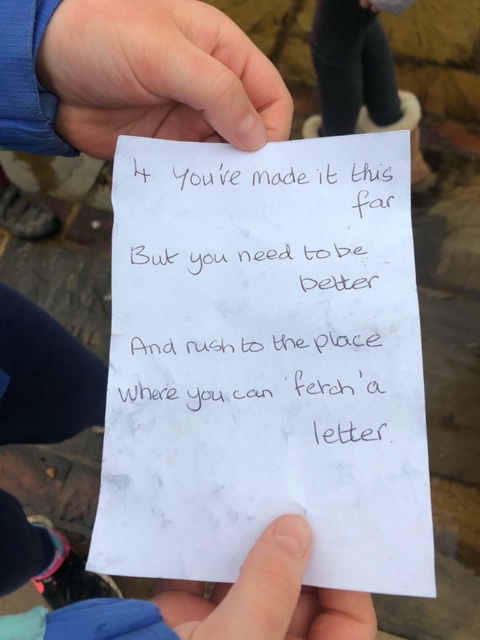 4 You've made it this
far
But you need to be
better
And rush to the place
where you can 'fetch' a
letter.